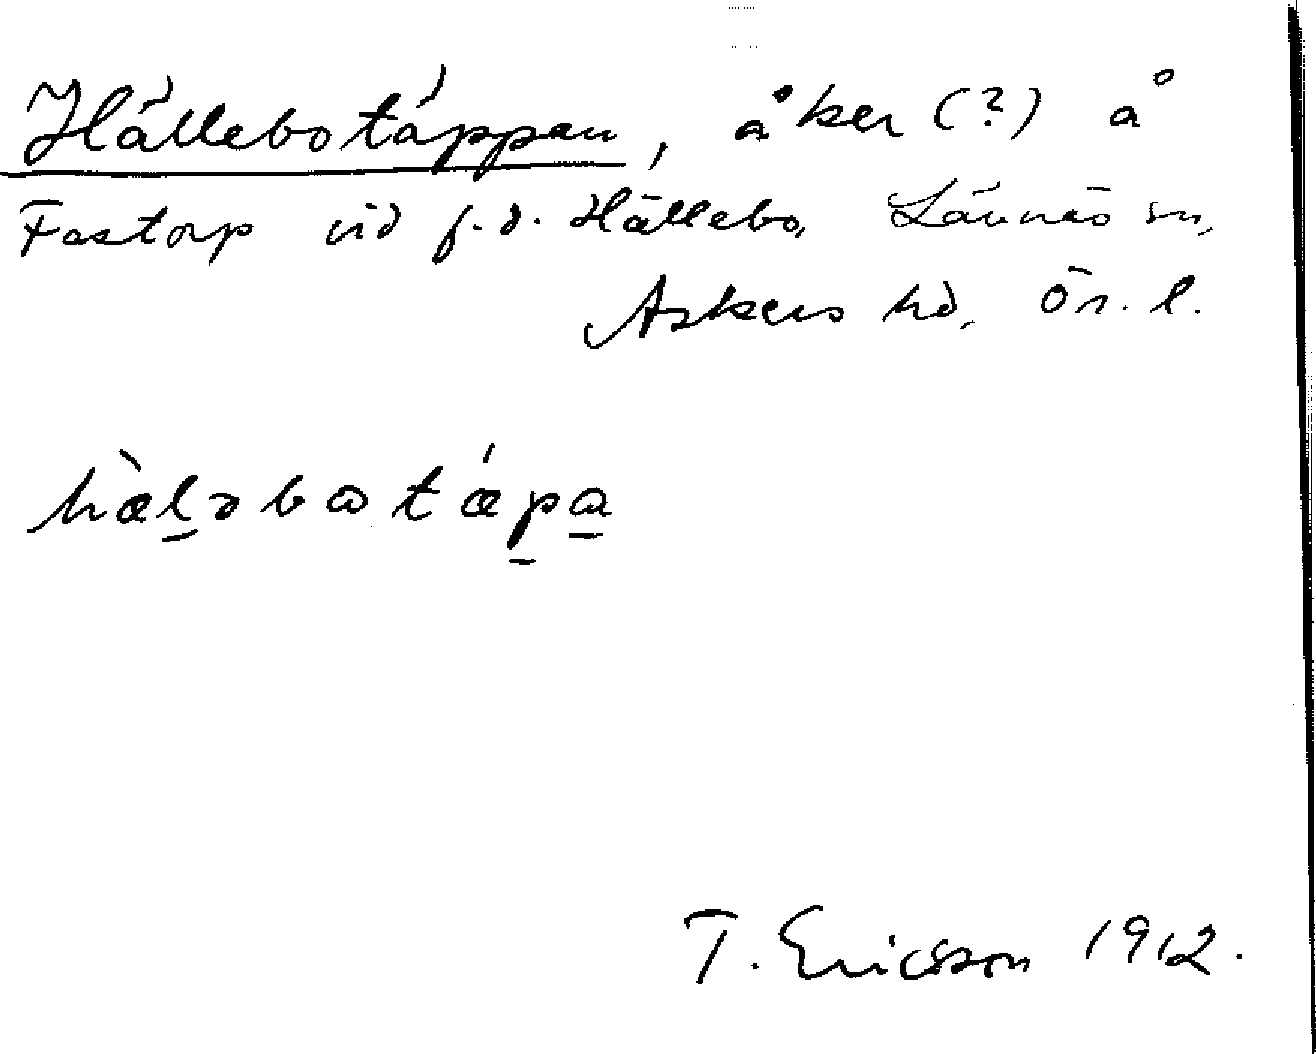 Hällebotäppan, åker (?) å
Fastorp vid f.d. Hällebo, Lännäs sn,
Askers hd, Ör. l.
hælɔbɷtæpa
T. Ericsson 1912.